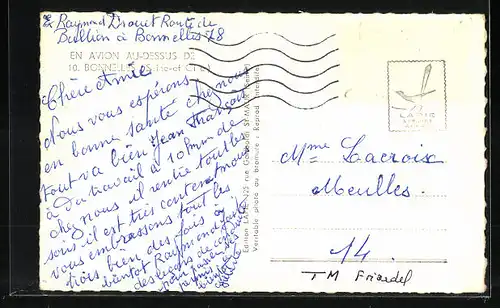 Ex Raymond Drouet Route de
Bullion à Bonnelles 78
EN AVION AU-DESSUS DE
10. BONNELLES
Chère Amie
Nous vous espérons
en bonne santé chez nous
tout va bien Jean François
à Du travail à 10 km de
chez nous il rentre tous les
soirs il est très content nous
vous embrassons tous les
trois bien des fois
bientôt Raymond
Edition LAPIE
Véritable photo au bromure - Reprod. interdite
LAPIE
Mme Lacroix
Meulles
14
TM Friardel